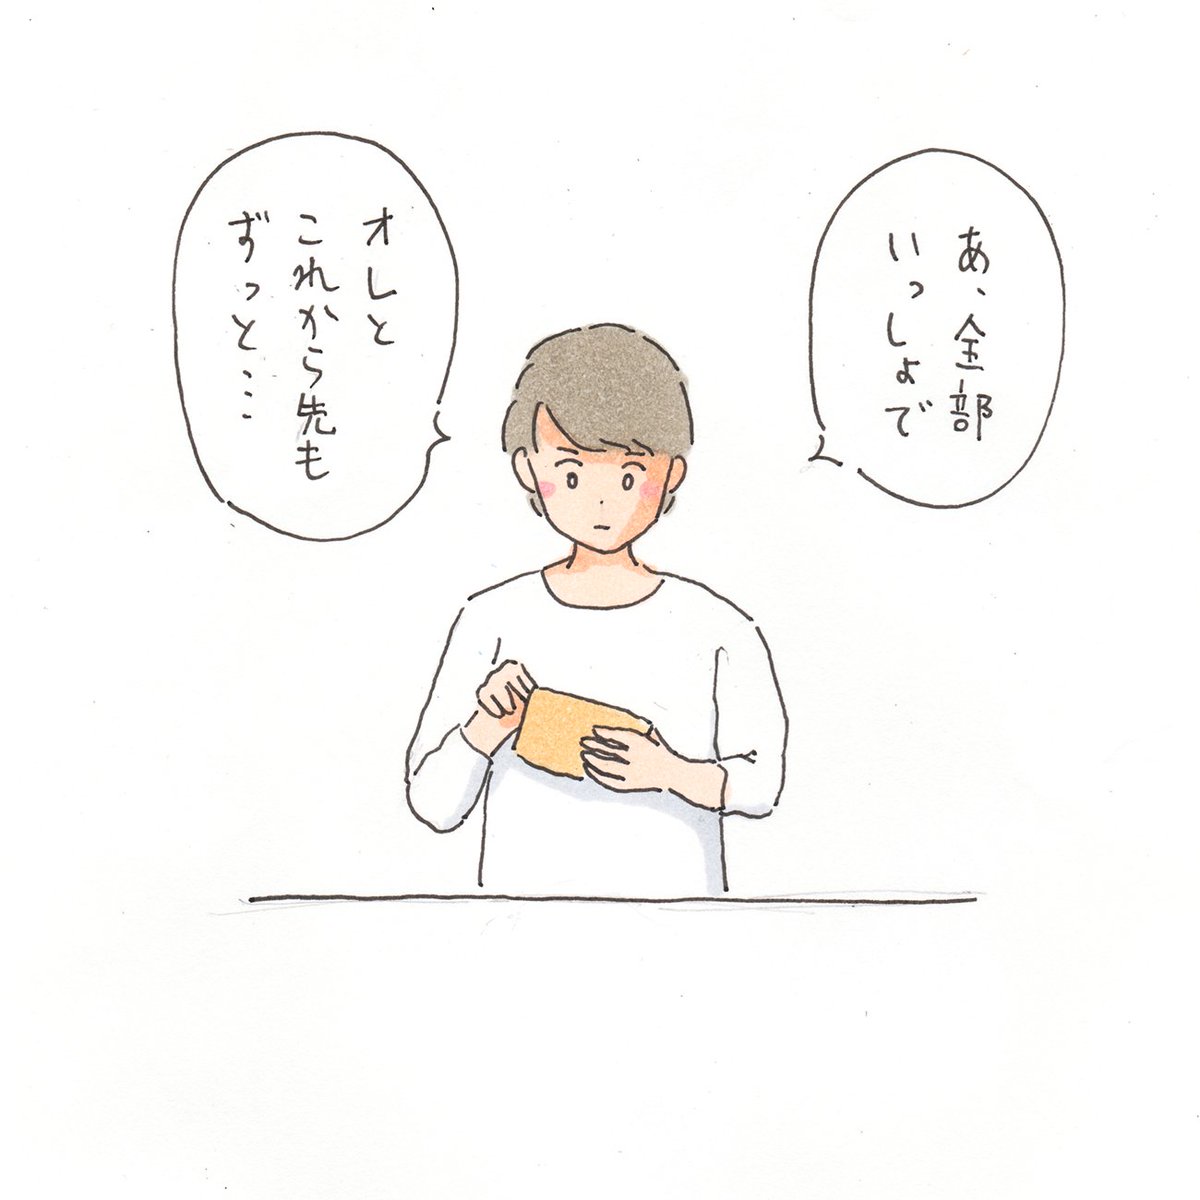 あ、全部
いっしょで
オレと
これから先も
ずっと・・・